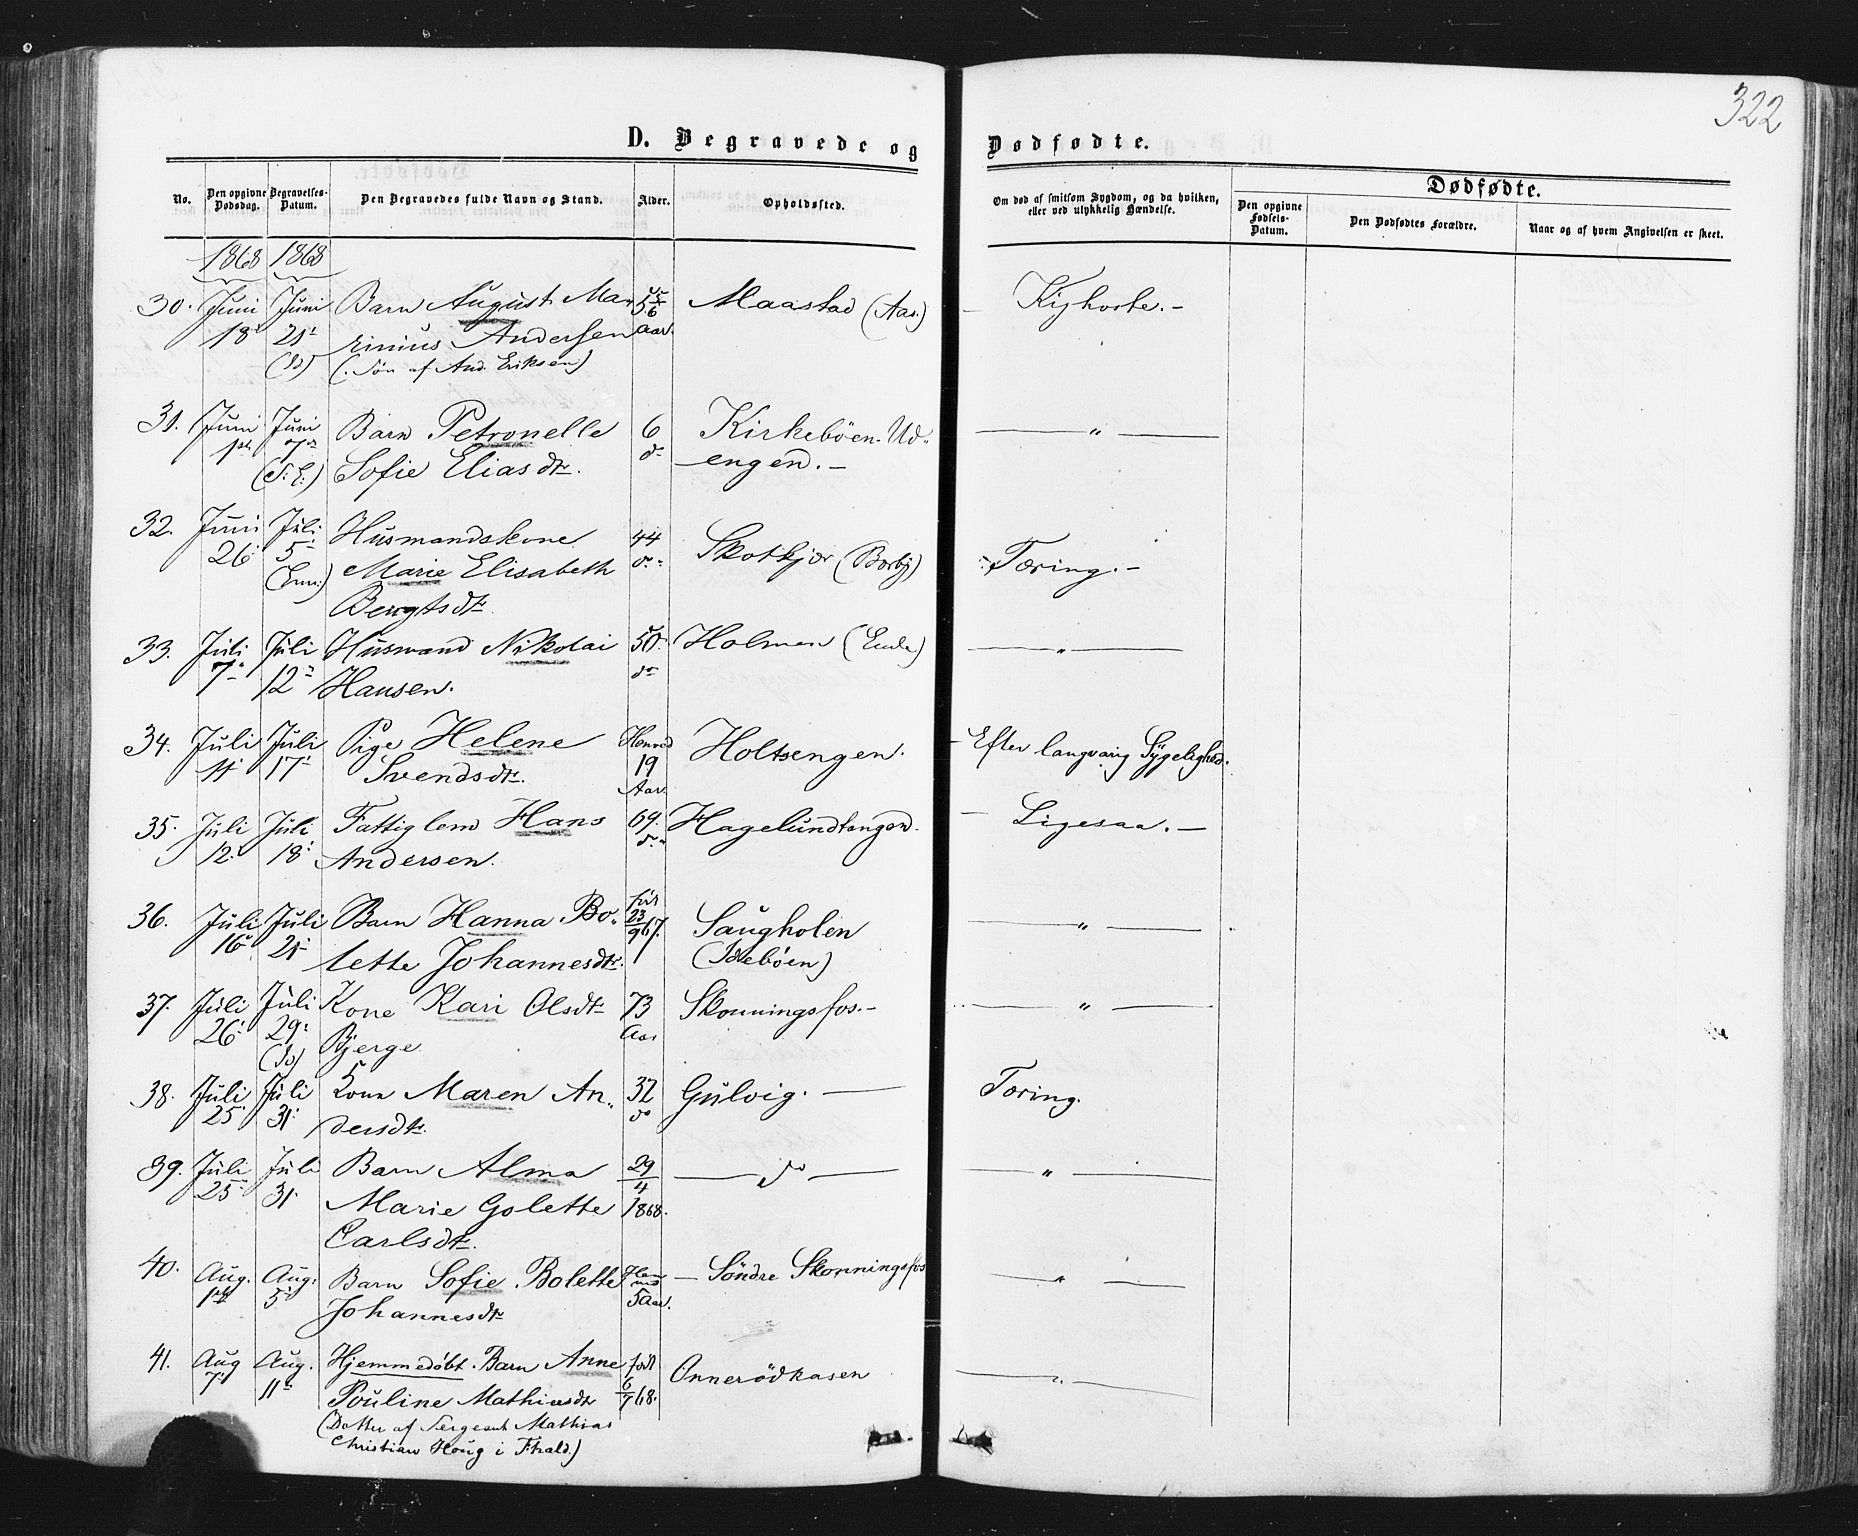 322
D. Begravede og Dødfødte.
No.
Den opgivne Dødsdag.
Begravelses-Datum.
Den Begravedes fulde Navn og Stand.
Alder.
Opholdssted.
Om død af smitsom Sygdom, og da hvilken, eller ved ulykkelig Hændelse.
Dødfødte.
Den opgivne Fødsels-Datum.
Den Dødfødtes Forældre.
Naar og af hvem Angivelsen er skeet.
1868 1868
30. Juni Juni Barn August Ma- 5 5/6 Maastad (Aas.) – Kighoste. –
18 21 rinius Andersen Aar.
(Is) (: Søn af And. Eriksen)
31. Juni Juni Barn Petronelle 6 Kirkebøen- Ud- — " —
1ste 7de Sofie Eliasdtr. do engen. –
(I. E.)
32. Juni Juli Husmandskone 44 Skotkjær (Bærby) – Tæring. –
26 5 Marie Elisabeth do
(Enn.) Bengtsdtr.
33. Juli Juli Husmand Nikolai 50 Holmen (Ende) — " —
7 12 Hansen. do
34. Juli Juli Pige Helene Henved Holtsengen. – Efter langvarig Sygelighed.
11 17 Svendsdtr. 19
Aar
35. Juli Juli Fattiglem Hans 69. Hagelundtangen. – Ligesaa. –
12 18 Andersen. do
36. Juli Juli Barn Hanna Bo- før Saugholen — " —
16 21 lette Johannesdtr. 23/9 67. (Idebøen)
37. Juli Juli Kone Kari Olsdtr 73 Skonningsfos. – — " —
26 29 Bjerge Aar
(Is)
38. Juli Juli Kone Maren An- 32 Gulvig. — Tæring.
25 31 dersdtr. do
39. Juli Juli Barn Alma 29/4 — do — — " —
25 31 Marie Golette 1868.
Carlsdtr.
40. Aug. Aug. Barn Sofie Bolette Hen- — Søndre Skonningsfos — " —
1ste 5 Johannesdtr ved
5 Aar.
41. Aug Aug. Hjemmedøbt Barn Anne født Onnerødkasen — " —
7 11te Pouline Mathiasdtr 6/7 68.
(Datter af Sergeant Mathias
Christian Houg i F.hald.)